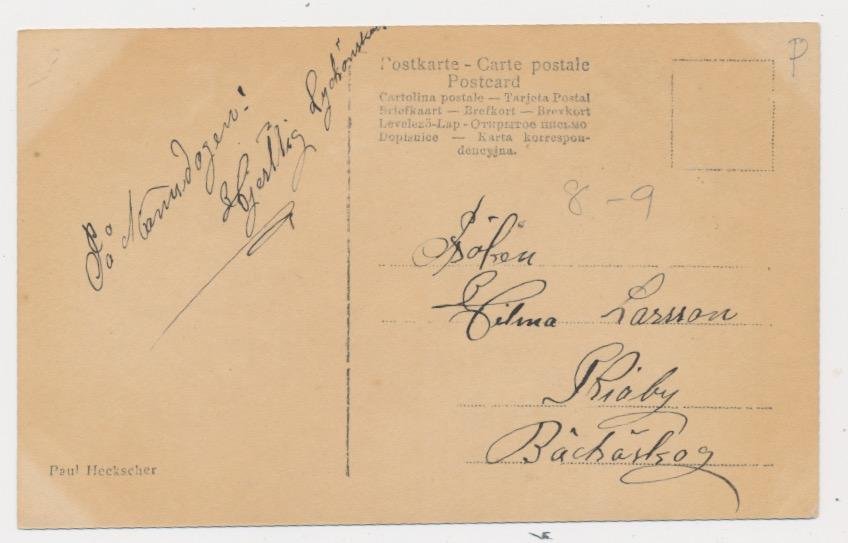 På Namnsdagen!
Hjertlig Lyckönskan
Postkarte - Carte postale
Postcard
Cartolina postale — Tarjeta Postal
Briefkaart — Brefkort — Brevkort
Levelező-Lap - Открытое письмо
Dopisnice — Karta korrespon-
dencyjna.
P
8-9
Fröken
Hilma Larsson
Kiaby
Bäckaskog
Paul Heckscher